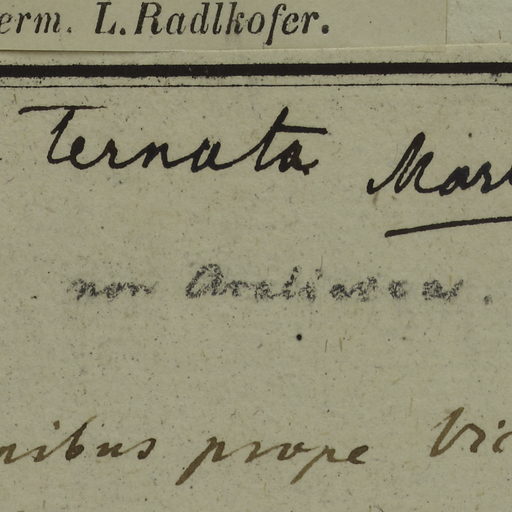 erm. L. Radlkofer.
Ternata Mar
non Araliacea.
nibus prope Vic